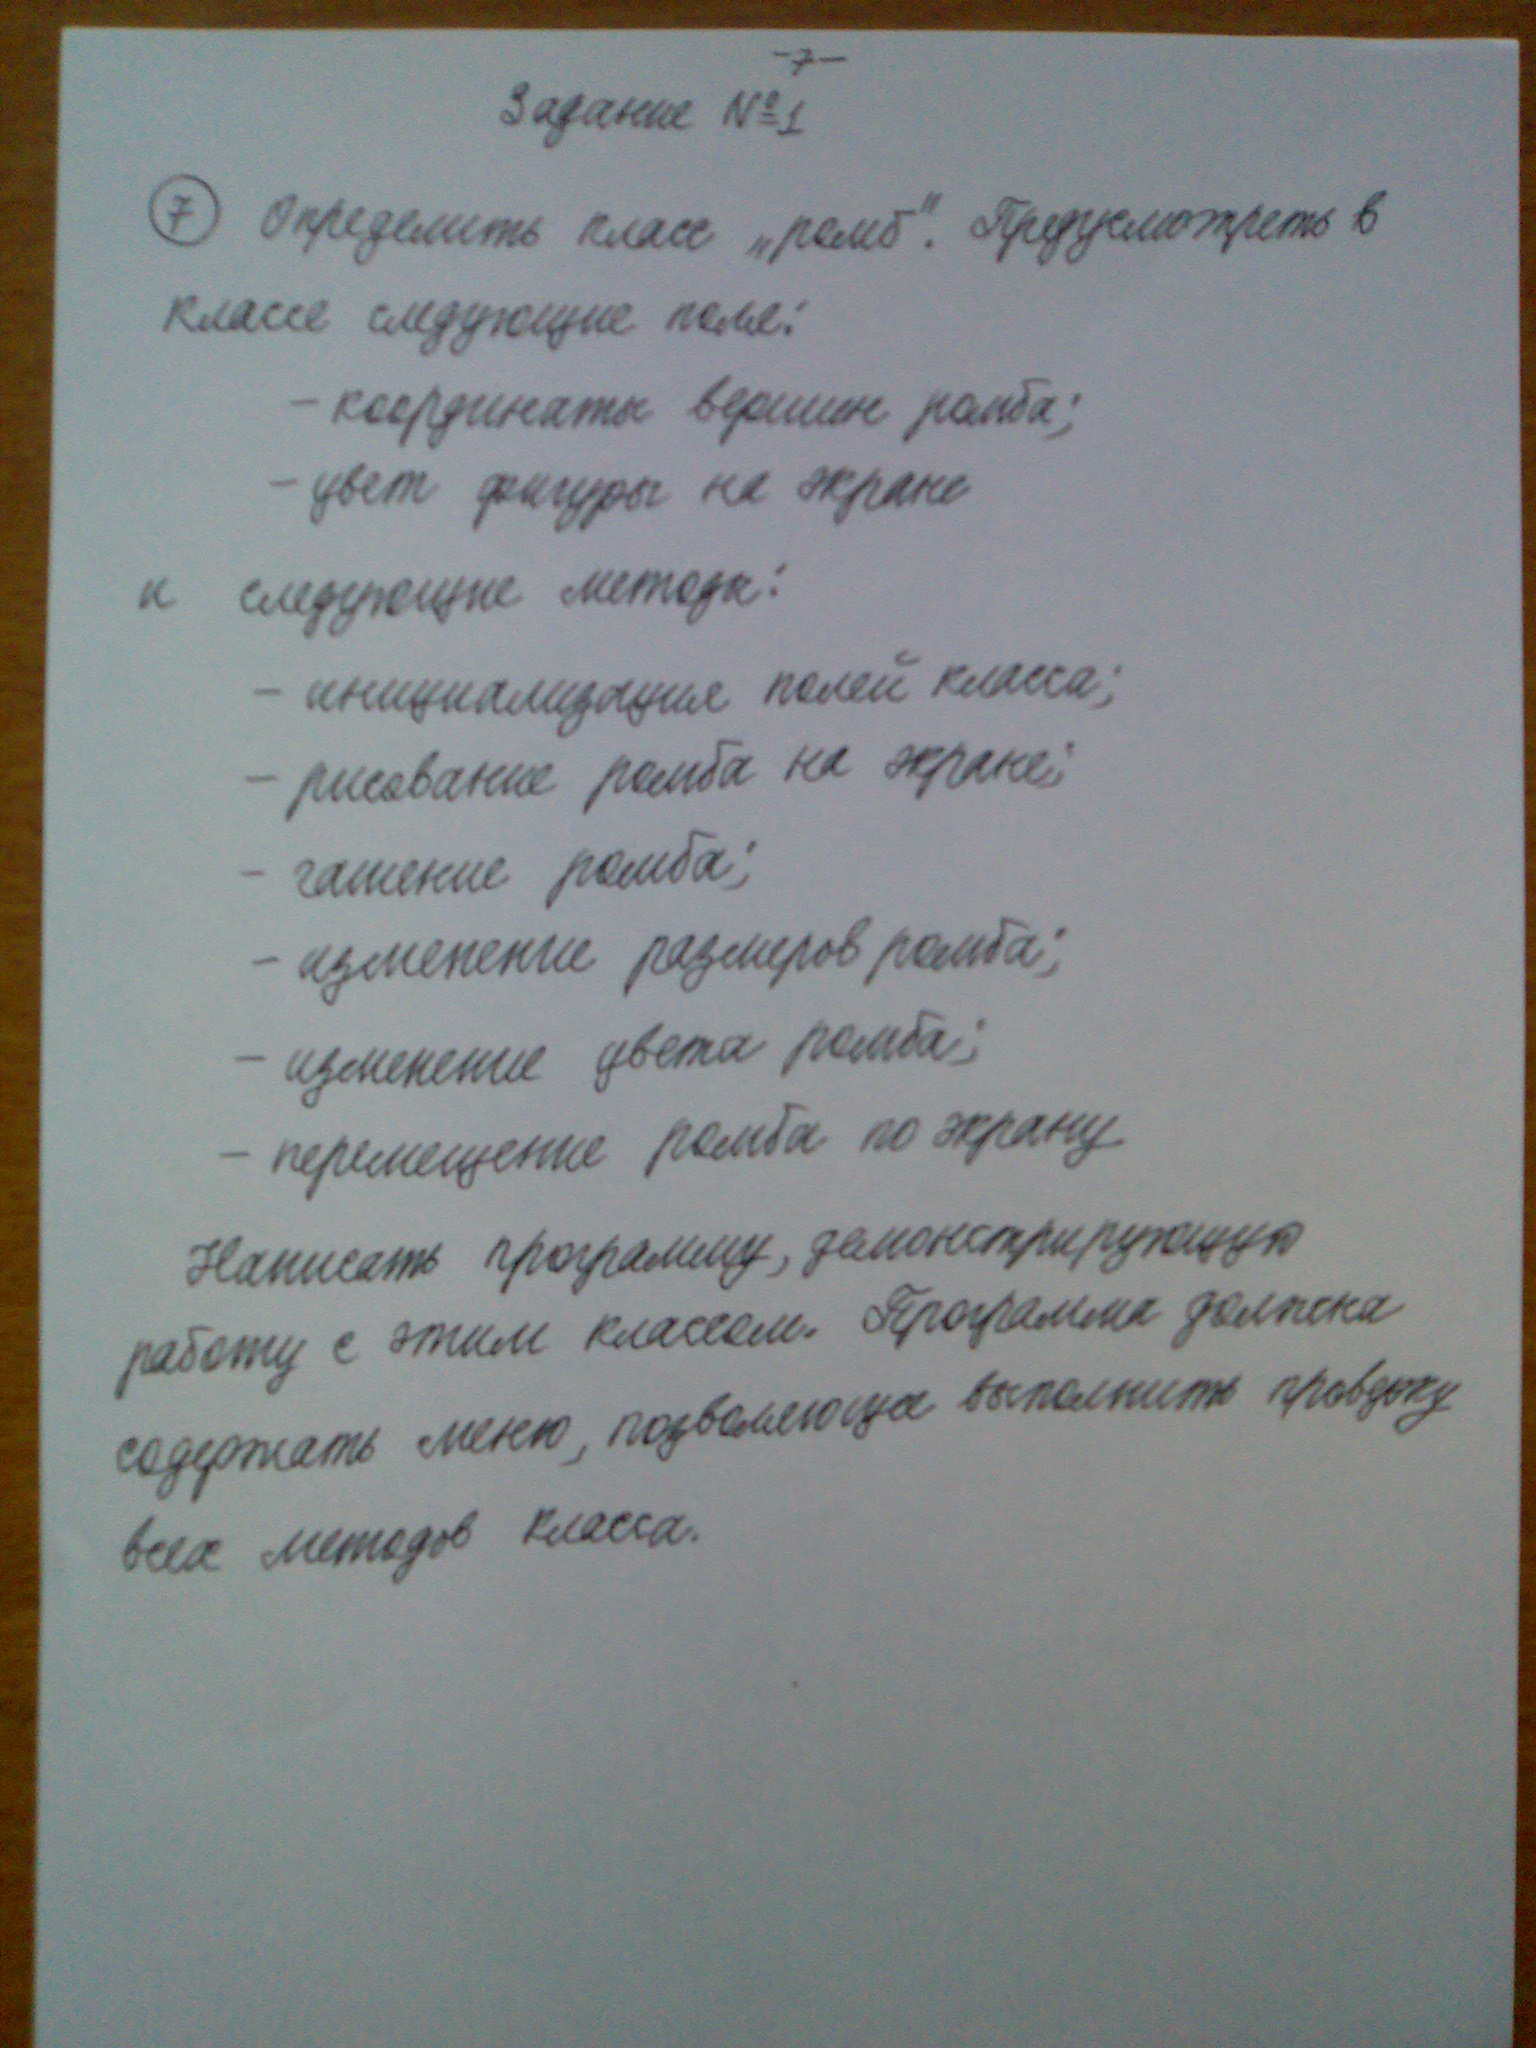 -7-
Задание №1
7 Определить класс „ромб". Предусмотреть в
классе следующие поля:
- координаты вершин ромба;
- цвет фигуры на экране
и следующие методы:
- инициализация полей класса;
- рисование ромба на экране;
- гашение ромба;
- изменение размеров ромба;
- изменение цвета ромба;
- перемещение ромба по экрану
Написать программу, демонстрирующую
работу с этим классом. Программа должна
содержать меню, позволяющее выполнить
всех методов класса.